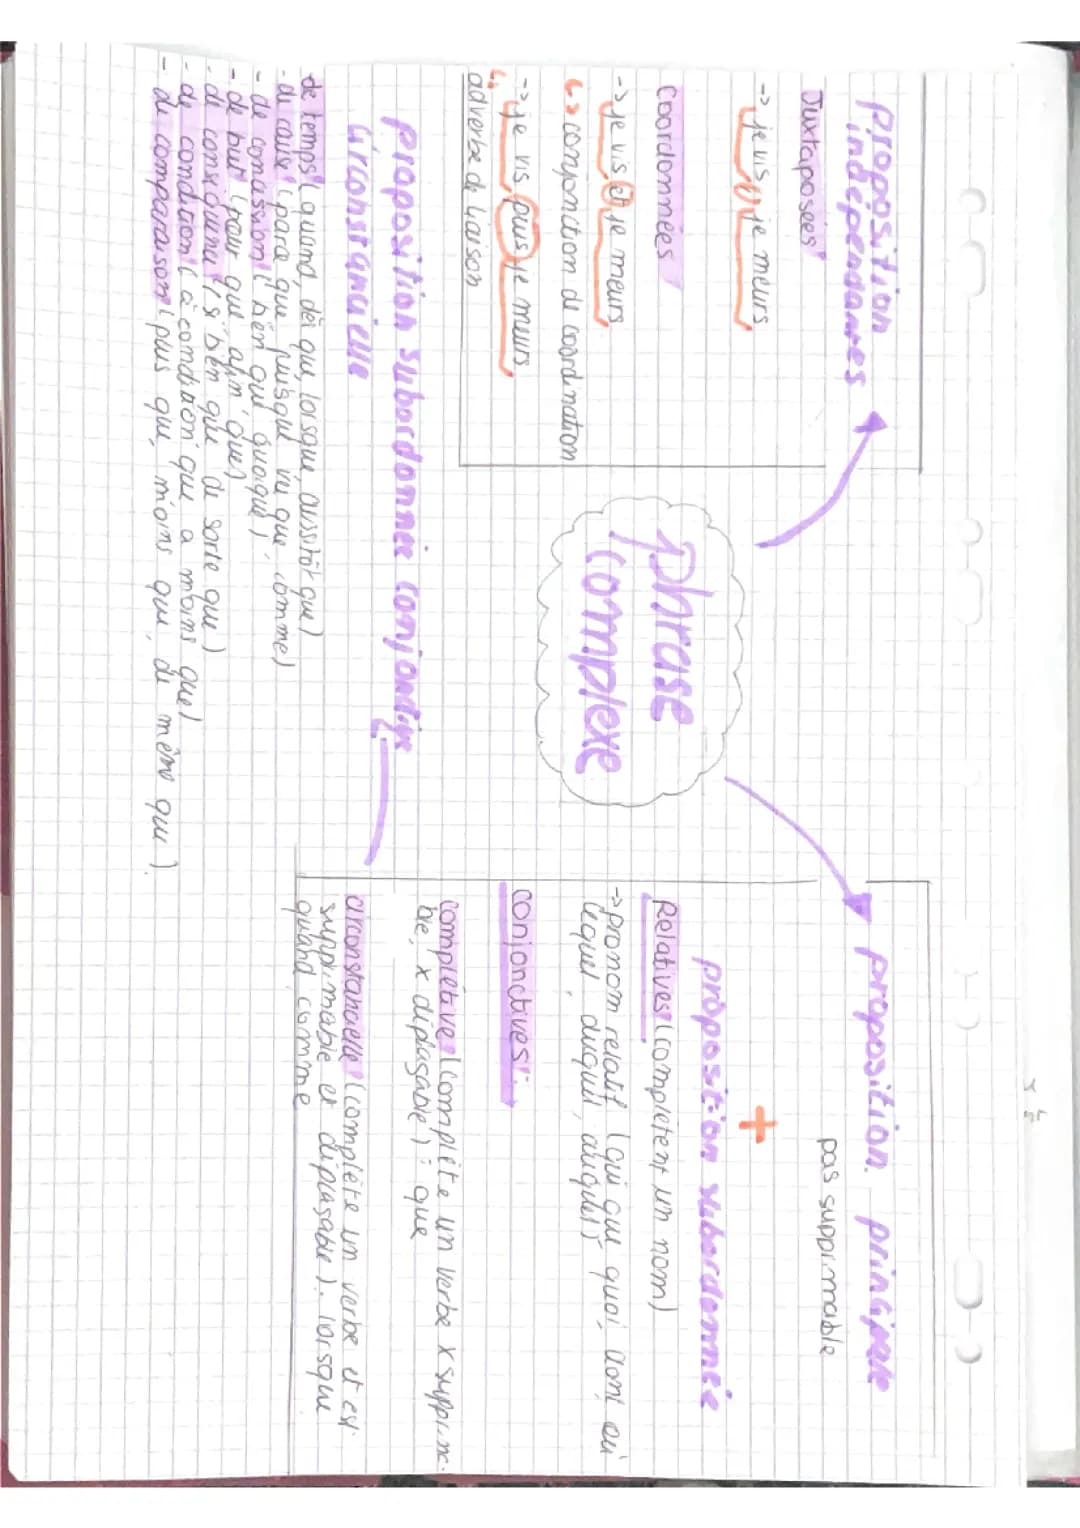 phrase
complexe
Proposition
indépendantes
Juxtaposées
-> je vis, je meurs,
Coordonnées
-> je vis et je meurs
↳ conjonction de coordination
-> je vis, puis je meurs,
↳ adverbe de liaison
proposition principale
pas supprimable
+
proposition subordonnée
Relatives (complètent un nom)
-> pronom relatif (qui que quoi, dont où
lequel, duquel, auquel)
conjonctives:
complétive (complète un verbe x supprima-
ble, x déplaçable) : que
circonstancielle (complète un verbe et est
supprimable et déplaçable). lorsque
quand comme
proposition subordonnée conjonctive
circonstancielle
de temps (quand, dès que, lorsque, aussitôt que)
- de cause (parce que, puisque, vu que, comme)
- de concession (bien que quoique)
- de but (pour que, afin que)
- de conséquence (si bien que, de sorte que)
- de condition (à condition que a moins que)
- de comparaison (plus que, moins que, de même que).